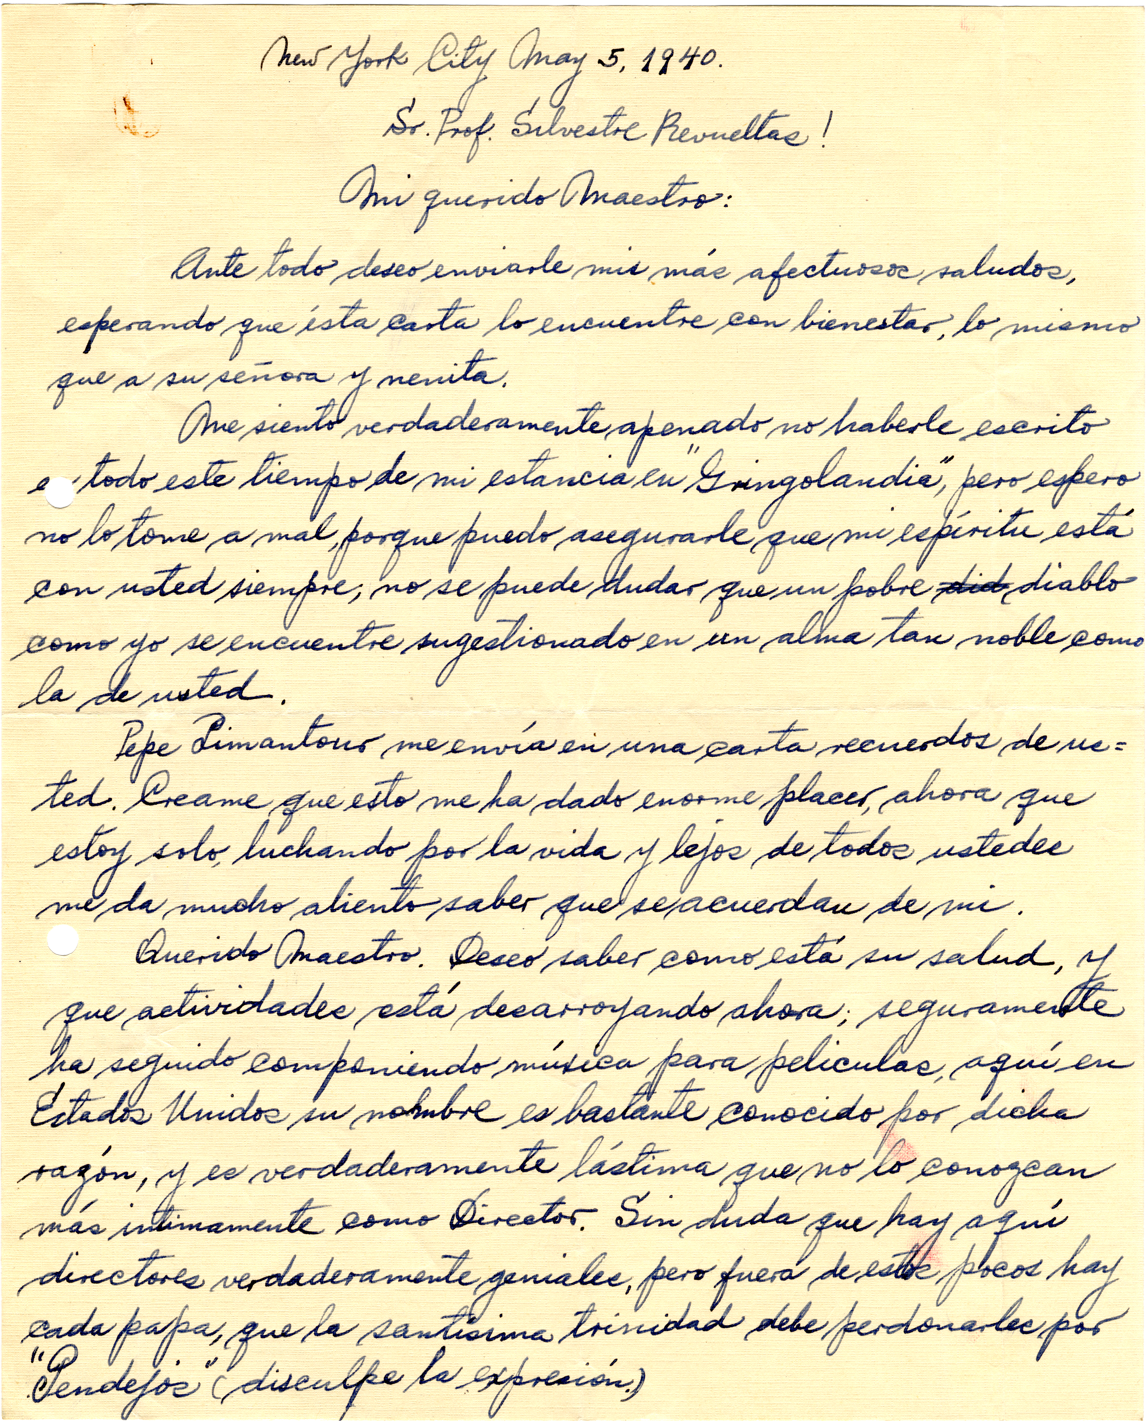 New York City May 5, 1940.
Sr. Prof. Silvestre Revueltas!
Mi querido Maestro:
Ante todo deseo enviarle mis más afectuosos saludos,
esperando que ésta carta lo encuentre con bienestar, lo mismo
que a su señora y nenita.
Me siento verdaderamente apenado no haberle escrito
en todo este tiempo de mi estancia en "Gringolandia", pero espero
no lo tome a mal, porque puedo asegurarle que mi espíritu está
con usted siempre; no se puede dudar que un pobre did, diablo
como yo se encuentre sugestionado en un alma tan noble como
la de usted.
Pepe Limantour me envía en una carta recuerdos de us=
ted. Creame que esto me ha dado enorme placer, ahora que
estoy solo, luchando por la vida y lejos de todos ustedes
me da mucho aliento saber que se acuerdan de mi.
Querido Maestro. Deseo saber como está su salud, y
que actividades está desarroyando ahora; seguramente
ha seguido componiendo música para peliculas, aquí en
Estados Unidos su nombre es bastante conocido por dicha
razón, y es verdaderamente lástima que no lo conozcan
más intimamente como Director. Sin duda que hay aquí
directores verdaderamente geniales, pero fuera de estos pocos hay
cada papa, que la santísima trinidad debe perdonarles por
"Pendejos" (disculpe la expresión.)